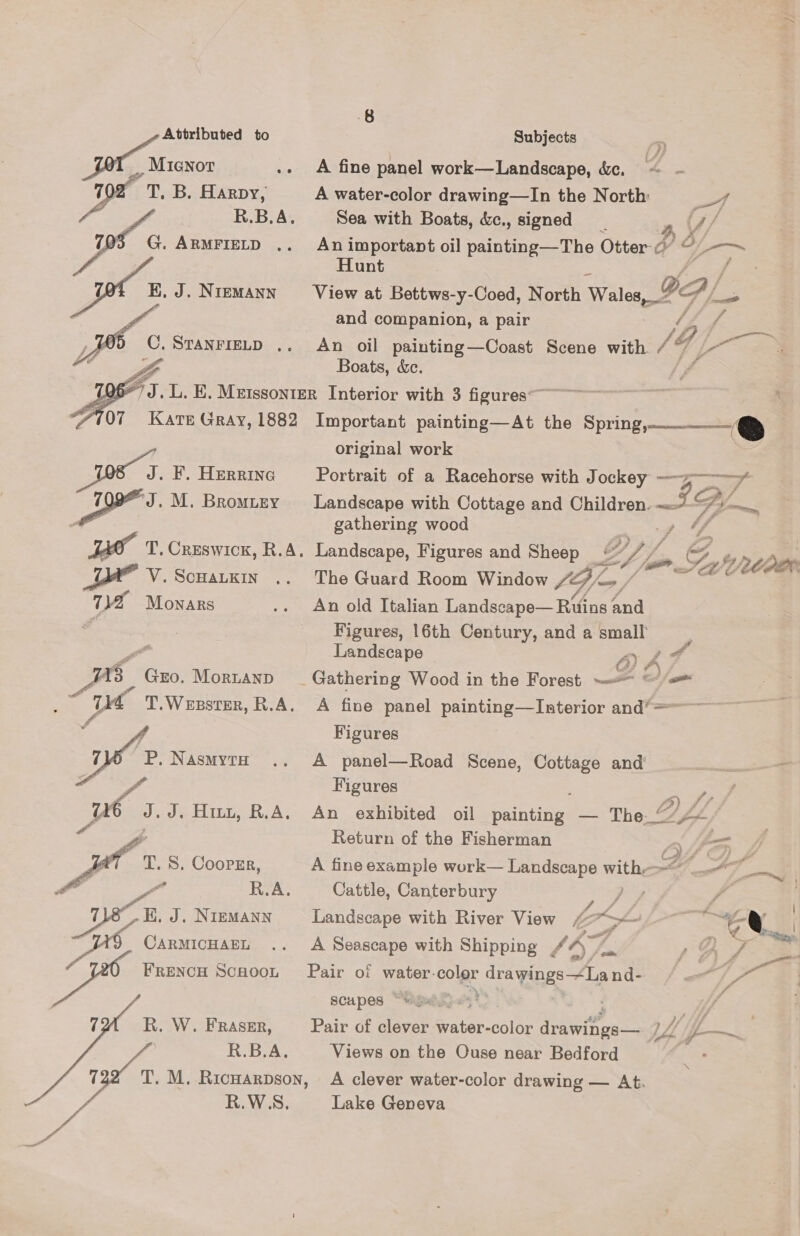 8
Attributed to Subjects
701 Mignot .. A fine panel work—Landscape, &c.
702 T. B. Hardy, A water-color drawing—In the North
R.B.A. Sea with Boats, &c., signed
703 G. Armfield .. An important oil painting—The Otter
Hunt
704 E. J. Niemann View at Bettws-y-Coed, North Wales,
and companion, a pair
705 C. Stanfield .. An oil painting—Coast Scene with
Boats, &c.
706 J. L. E. Meissonier Interior with 3 figures
707 Kate Gray, 1882 Important painting—At the Spring,
original work
708 J. F. Herring Portrait of a Racehorse with Jockey
709 J. M. Bromley Landscape with Cottage and Children
gathering wood
710 T. Creswick, R.A. Landscape, Figures and Sheep
711 V. Schalkin .. The Guard Room Window
712 Monars .. An old Italian Landscape—Ruins and
Figures, 16th Century, and a small
Landscape
713 Geo. Morland Gathering Wood in the Forest
714 T. Webster, R.A. A fine panel painting—Interior and
Figures
715 P. Nasmyth .. A panel—Road Scene, Cottage and
Figures
716 J. J. Hill, R.A. An exhibited oil painting — The
Return of the Fisherman
717 T. S. Cooper, A fine example work—Landscape with
R.A. Cattle, Canterbury
718 E. J. Niemann Landscape with River View
719 Carmichael .. A Seascape with Shipping
720 French School Pair of water-color drawings—Land-
scapes
721 R. W. Fraser, Pair of clever water-color drawings—
R.B.A. Views on the Ouse near Bedford
722 T. M. Richardson, A clever water-color drawing — At
R.W.S. Lake Geneva